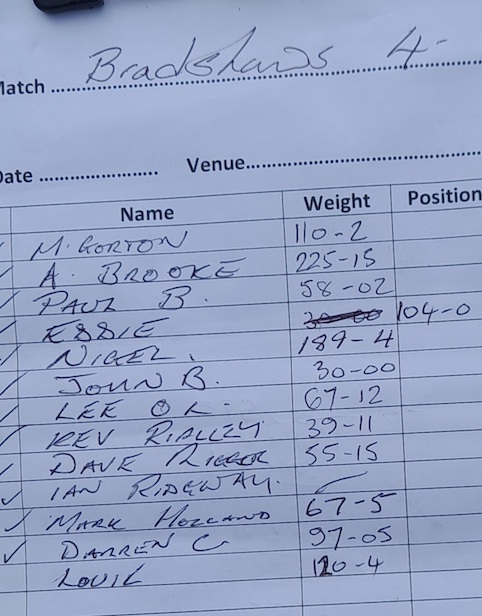 Match Bradshaws 4-
Date Venue
Name Weight Position
M. GORTON 110-2
A. BROOKE 225-15
PAUL B. 58-02
ESSIE 30-00 104-0
NIGEL. 189-4
JOHN B. 30-00
LEE O L- 67-12
KEV RIDLEY 39-11
DAVE 55-15
IAN RIDGWAY.
MARK HOLLAND 67-5
DARREN C 97-05
LOUIE 120-4